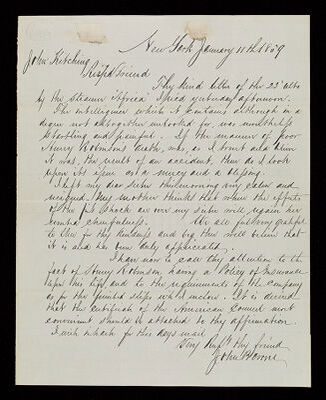 New York January 11th 1859
John Kitching
Rispd Friend
Thy kind letter of the 23d ulto
by the steamer Africa I recd yesterday afternoon.
The intelligence which it contains although in a
degree not altogether unlooked for, was nonetheless
startling and painful. If the manner of poor
Henry Robinsons death, was, as I trust and
it was, the result of an accident, then do I look
upon its issue as a mercy and a blessing.
I left my dear sister this morning very calm and
resigned. My mother thinks that when the effects
of the first shock are over my sister will regain her
wonted cheerfulness. We all feel very grateful
to thee for thy kindness and beg thee will believe that
it is and has been duly appreciated.
I have now to call thy attention to the
fact of Henry Robinson having a Policy of Insurance
upon his life, and to the requirements of the company
as per the printed slips which I enclose. It is desired
that the certificate of the American Consul most
convenient should be attached to the affirmation.
I wish which for this days mail
Very Respy thy friend
John H